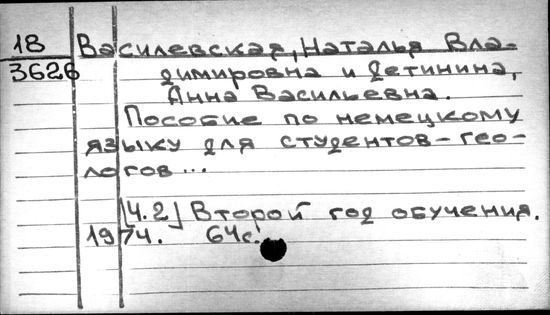 18 Василевская, Наталья Вла-
3626 димировна и Детинина,
Анна Васильевна.
Пособие по немецкому
языку для студентов-гео-
логов...
[Ч.2] Второй год обучения.
1974. 64с.